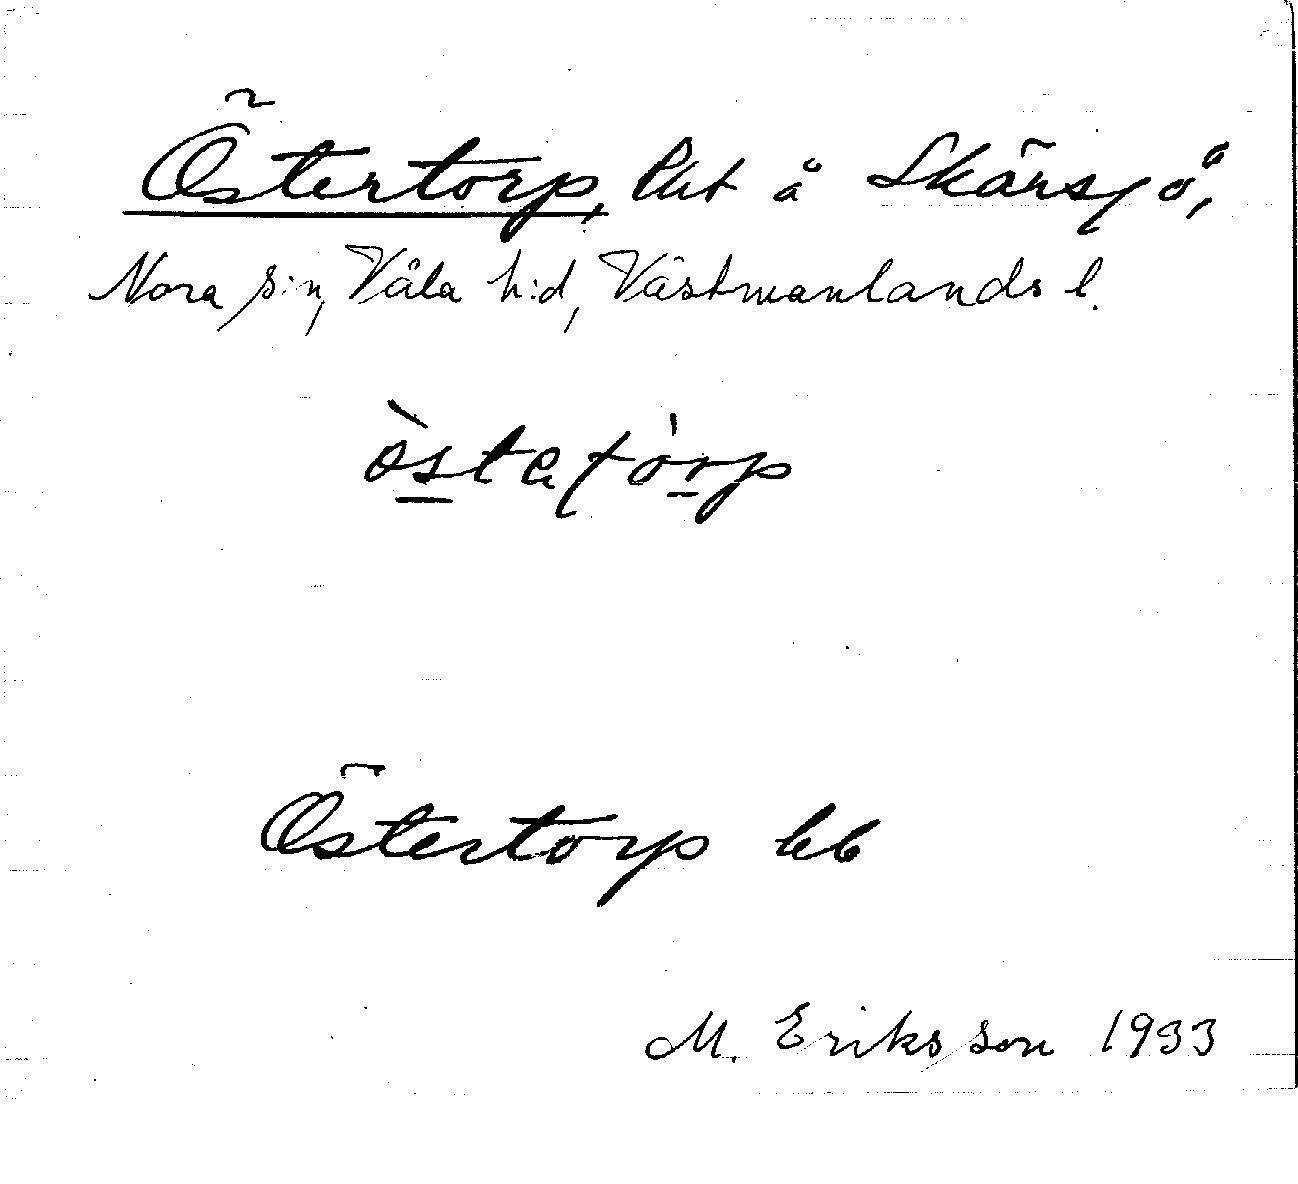 Östertorp, lht å Skärsjö,
Nora s:n, Våla h:d, Västmanlands l.
òstatórp
Östertorp bb
M. Eriksson 1933